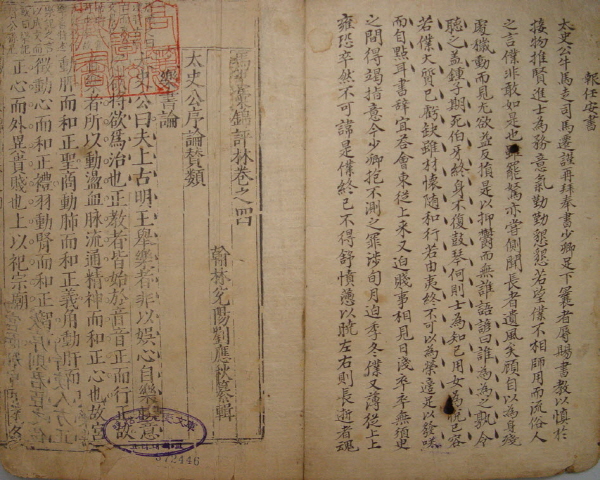 報任安書
太史公牛馬走司馬遷謹再拜奉書少卿足下曩者辱賜書教以慎於
接物推賢進士為務意氣勤勤懇懇若望僕不相師用而流俗人
之言僕非敢如是也雖罷駑亦嘗側聞長者遺風矣顧自以為身殘
處穢動而見尤欲益反損是以抑鬱而無誰語諺曰誰為為之孰令
聽之蓋鍾子期死伯牙終身不復鼓琴何則士為知己用女為說己容
若僕大質已虧缺雖材懷隨和行若由夷終不可以為榮適足以發咲
而自點耳書辭宜答會東從上來又迫賤事相見日淺卒卒無須臾
之間得竭指意今少卿抱不測之罪涉旬月迫季冬僕又薄從上上
雍恐卒然不可諱是僕終已不得舒憤懣以曉左右則長逝者魂
錦評林卷之四
翰林 陽劉應秋纂輯
太史公序論贊類
樂書論
太史公曰夫上古明王舉樂者非以娛心自樂快意
將欲為治也正教者皆始於音音正而行正故
者所以動盪血脉流通精神而和正心也故宮
動脾而和正聖商動肺而和正義角動肝而
徵動心而和正禮羽動腎而和正
正心而外異貴賤也上以祀宗廟
072446